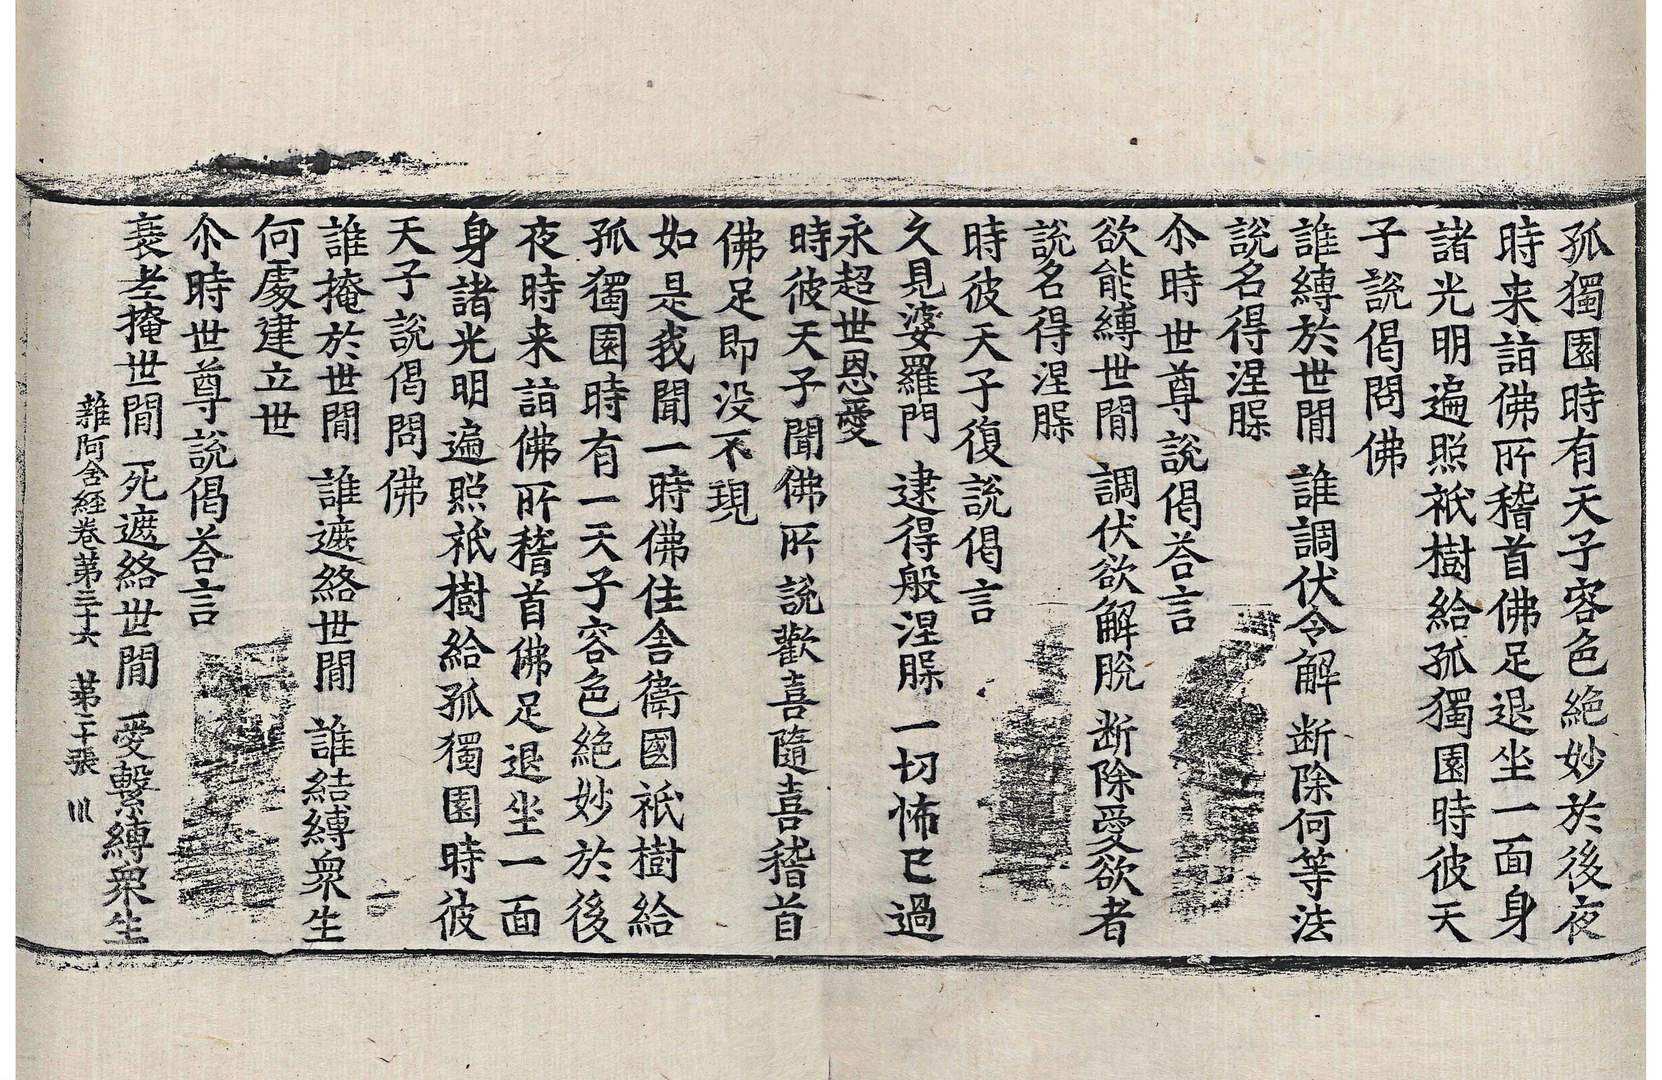 孤獨園時有天子容色絶妙於後夜
時来詣佛所稽首佛足退坐一面身
諸光明遍照祇樹給孤獨園時彼天
子說偈問佛
誰縛於世間　誰調伏令解　断除何等法
說名得涅脲
尒時世尊說偈荅言
欲能縛世間　調伏欲解脫　断除愛欲者
說名得涅脲
時彼天子復說偈言
久見婆羅門　逮得般涅脲　一切怖已過
永超世恩愛
時彼天子聞佛所說歡喜隨喜稽首
佛足即没不現
如是我聞一時佛住舍衛國祇樹給
孤獨園時有一天子容色絶妙於後
夜時来詣佛所稽首佛足退坐一面
身諸光明遍照祇樹給孤獨園時彼
天子說偈問佛
誰掩於世間　誰遮絡世間　誰結縛衆生
何處建立世
尒時世尊說偈荅言
衰老掩世間　死遮絡世間　愛繫縛衆生
雜阿含経卷第三十六　第二十張　川